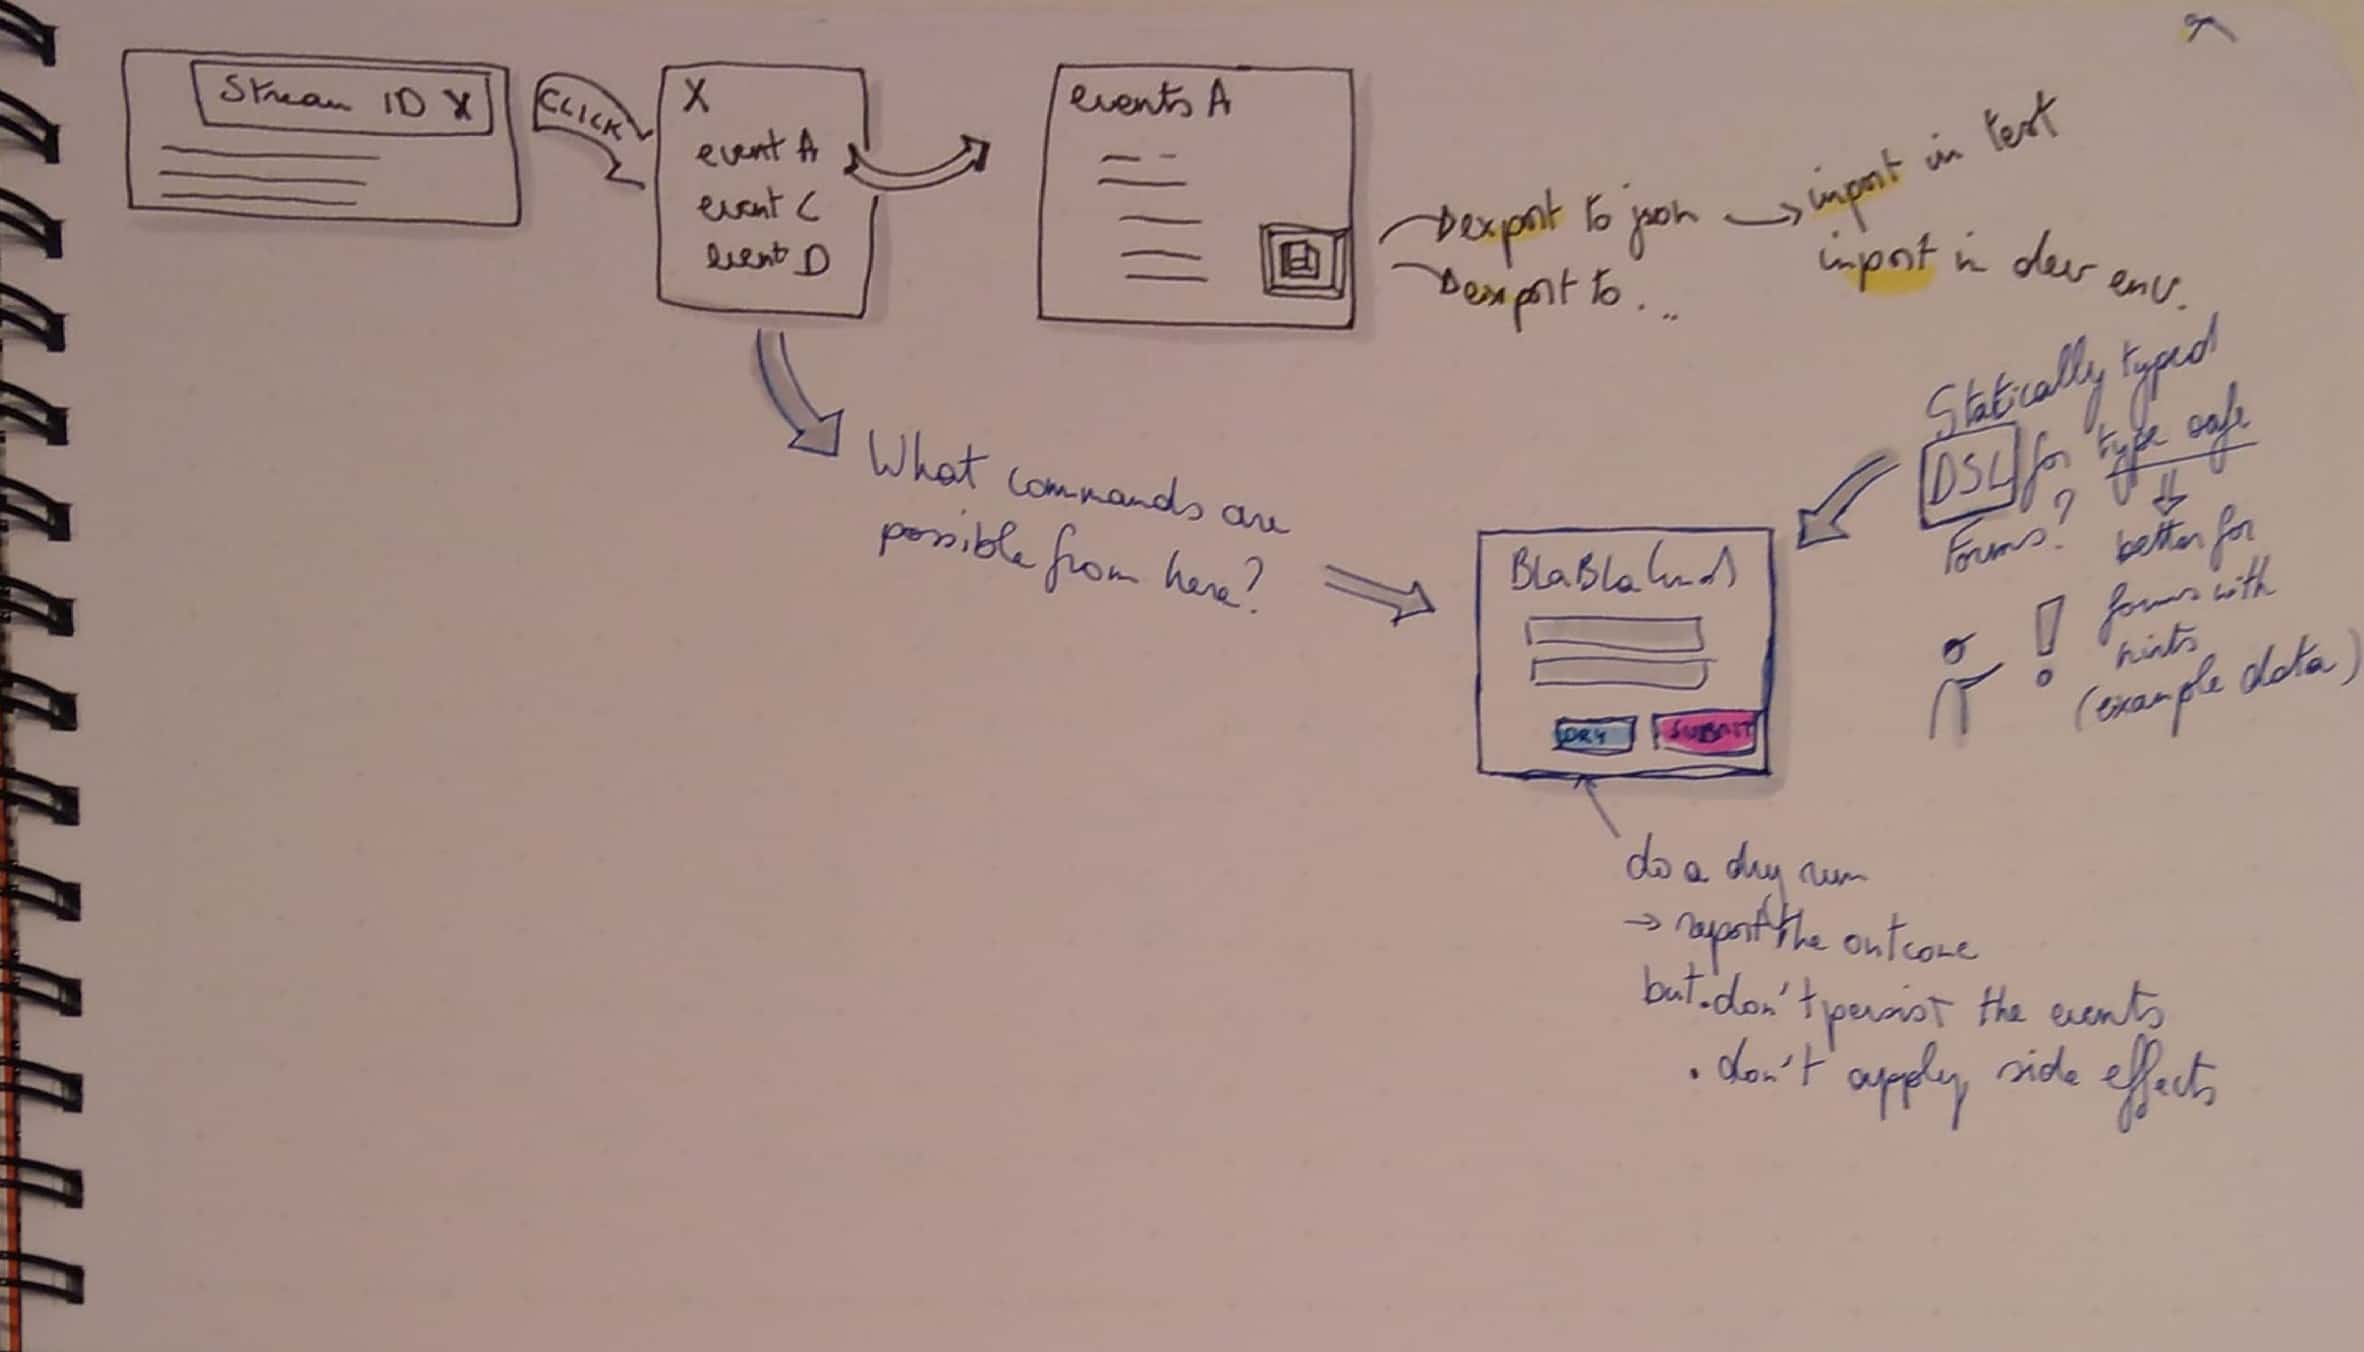 Stream ID X
CLICK
X
event A
event C
event D
events A
export to json → import in test
import in dev env.
export to...
What commands are
possible from here?
BlaBlaCmd
DRY
SUBMIT
Statically typed
DSL for type safe
Forms?
⇓
better for
forms with
hints
(example data)
!
do a dry run
→ report the outcome
but . don't persist the events
. don't apply side effects